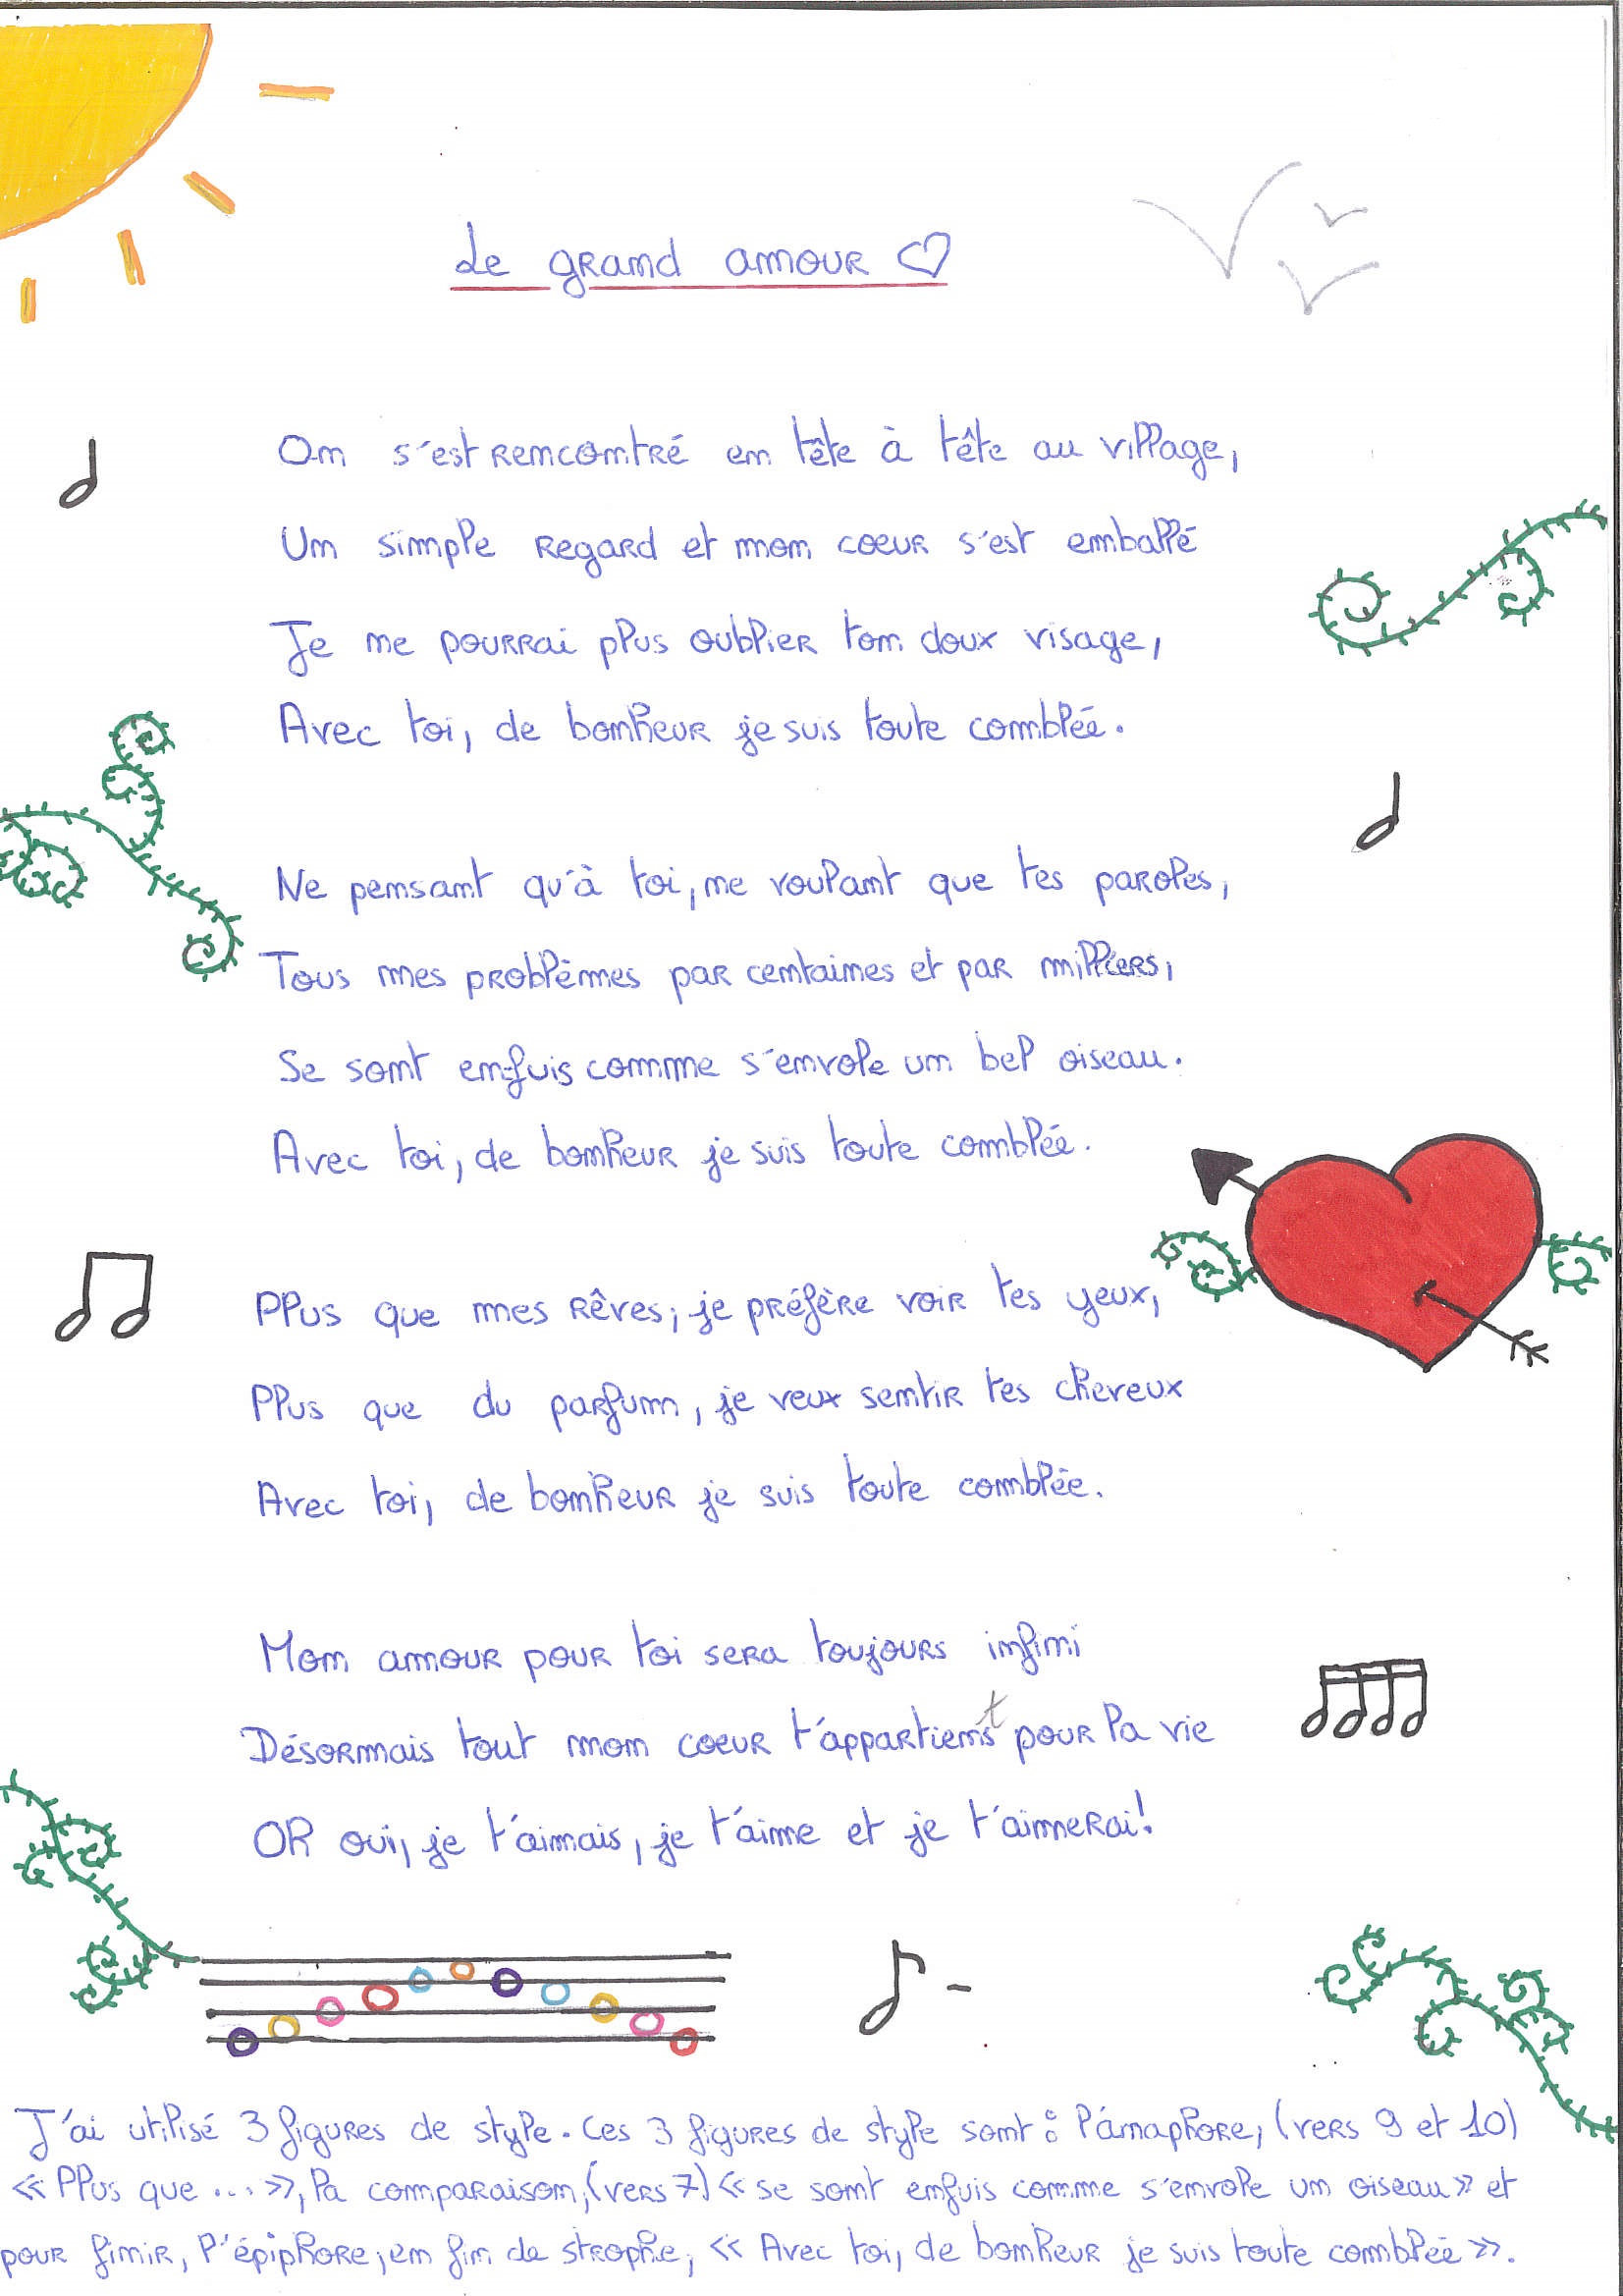 Le grand amour ♡
On s'est rencontré en tête à tête au village,
Un simple regard et mon coeur s'est emballé
Je ne pourrai plus oublier ton doux visage,
Avec toi, de bonheur je suis toute comblée.
Ne pensant qu'à toi, ne voulant que tes paroles,
Tous mes problèmes par centaines et par milliers,
Se sont enfuis comme s'envole un bel oiseau.
Avec toi, de bonheur je suis toute comblée.
Plus que mes rêves, je préfère voir tes yeux,
Plus que du parfum, je veux sentir tes cheveux
Avec toi, de bonheur je suis toute comblée.
Mon amour pour toi sera toujours infini
Désormais tout mon coeur t'appartient pour la vie
Oh oui, je t'aimais, je t'aime et je t'aimerai!
J'ai utilisé 3 figures de style. Ces 3 figures de style sont : l'anaphore, (vers 9 et 10)
« Plus que ... », la comparaison, (vers 7) « se sont enfuis comme s'envole un oiseau » et
pour finir, l'épiphore, en fin de strophe, « Avec toi, de bonheur je suis toute comblée ».